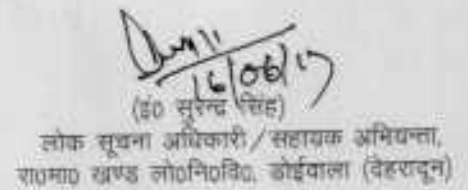 16/06/17
(इं0 सुरेन्द्र सिंह)
लोक सूचना अधिकारी/सहायक अभियन्ता,
रा0मा0 खण्ड लो0नि0वि0, डोईवाला (देहरादून)